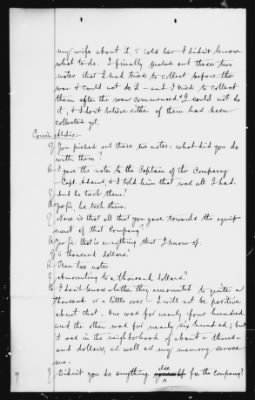 my wife about it & told her I didn't know
what to do. I finally picked out those two
notes that I had tried to collect before the
war & could not do it - and I tried to collect
them after the war commenced & I could not do
it, & I don't believe either of them had been
collected yet.
Q You picked out those two notes; what did you do
with them?
A I gave the notes to the Captain of the Company
Capt. Adams, & I told him that was all I had.
Q And he took them?
A Yes sir, he took them.
Q Now is that all that you gave towards the equip-
ment of that Company?
A Yes sir, that is everything that I know of.
Q A thousand dollars?
A Them two notes
Q Amounting to a thousand dollars?
A I don't know whether they amounted to quite a
thousand or a little over - I will not be positive
about that. One was for nearly four hundred
and the other was for nearly six hundred; but
it was in the neighborhood of about a thous-
and dollars, as well as my memory serves
me.
Q Didn't you do anything else for the Company?